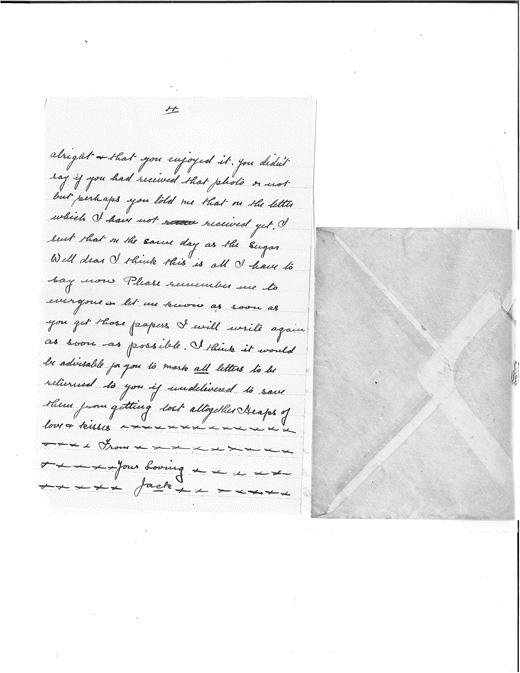 4
alright & that you enjoyed it. You didn't
say if you had received that photo or not
but perhaps you told me that on the letter
which I have not received yet. I
sent that on the same day as the sugar
Well dear I think this is all I have to
say now Please remember me to
everyone & let me know as soon as
you get those papers I will write again
as soon as possible. I think it would
be advisable for you to mark all letters to be
returned to you if undelivered to save
them from getting lost altogether Heaps of
love & kisses x x x x x x x x x x x x
x x x x From x x x x x x x x x
x x x x x Your Loving x x x x x x
x x x x x Jack x x x x x x x